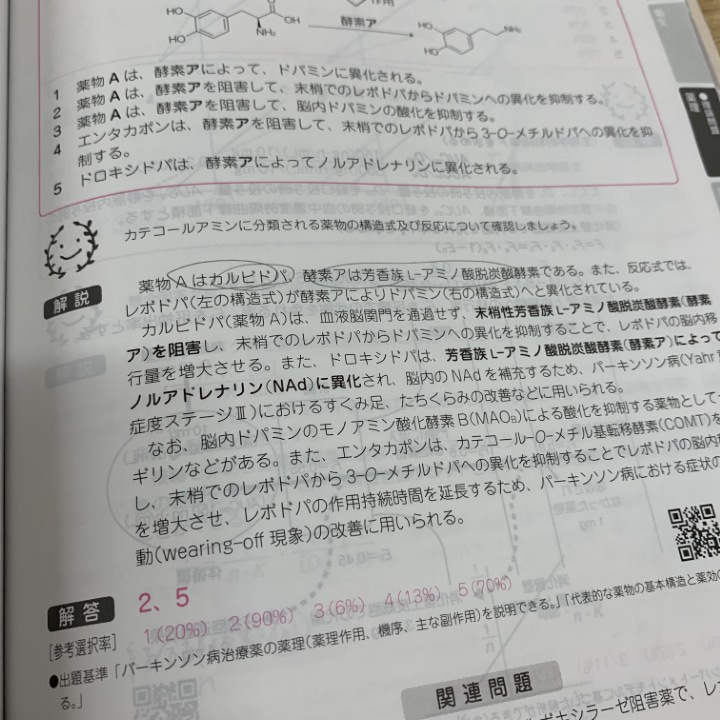 HO
HO
O
OH
NH₂
酵素ア
HO
HO
NH₂
1 薬物Aは、酵素アによって、ドパミンに異化される。
2 薬物Aは、酵素アを阻害して、末梢でのレボドパからドパミンへの異化を抑制する。
3 薬物Aは、酵素アを阻害して、脳内ドパミンの酸化を抑制する。
4 エンタカポンは、酵素アを阻害して、末梢でのレボドパから3-O-メチルドパへの異化を抑
制する。
5 ドロキシドパは、酵素アによってノルアドレナリンに異化される。
カテコールアミンに分類される薬物の構造式及び反応について確認しましょう。
解説
薬物Aはカルビドパ、酵素アは芳香族L-アミノ酸脱炭酸酵素である。また、反応式では、
レボドパ(左の構造式)が酵素アによりドパミン(右の構造式)へと異化されている。
カルビドパ(薬物A)は、血液脳関門を通過せず、末梢性芳香族L-アミノ酸脱炭酸酵素(酵素
ア)を阻害し、末梢でのレボドパからドパミンへの異化を抑制することで、レボドパの脳内移
行量を増大させる。また、ドロキシドパは、芳香族L-アミノ酸脱炭酸酵素(酵素ア)によって
ノルアドレナリン(NAd)に異化され、脳内のNAdを補充するため、パーキンソン病(Yahr
症度ステージⅢ)におけるすくみ足、たちくらみの改善などに用いられる。
なお、脳内ドパミンのモノアミン酸化酵素B(MAO_B)による酸化を抑制する薬物として
ギリンなどがある。また、エンタカポンは、カテコール-O-メチル基転移酵素(COMT)を
し、末梢でのレボドパから3-O-メチルドパへの異化を抑制することでレボドパの脳内
を増大させ、レボドパの作用持続時間を延長するため、パーキンソン病における症状の
動(wearing-off現象)の改善に用いられる。
解答 2、5
[参考選択率] 1(20%) 2(90%) 3(6%) 4(13%) 5(70%)
●出題基準「パーキンソン病治療薬の薬理(薬理作用、機序、主な副作用)を説明できる。」「代表的な薬物の基本構造と薬効の
る。」
関連問題
ボキシラーゼ阻害薬で、レ